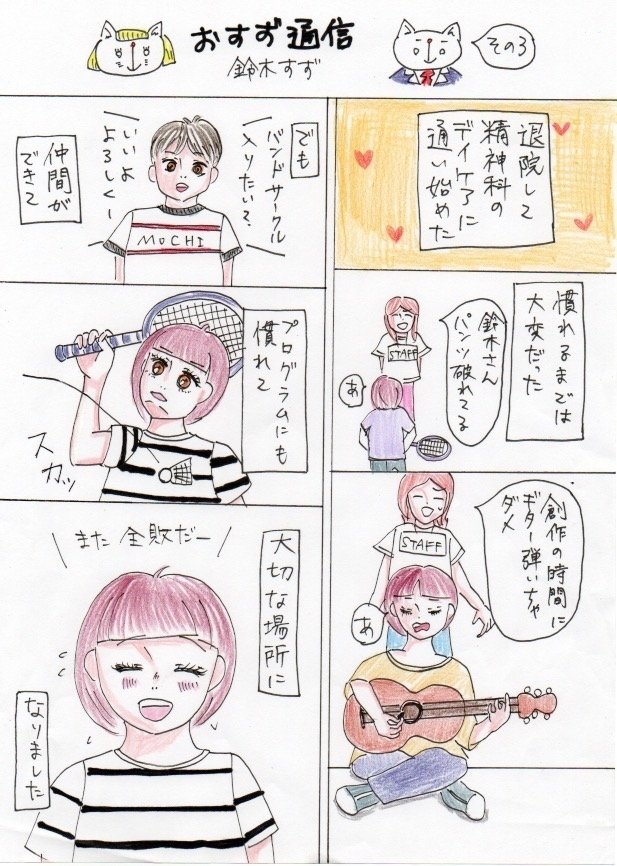 おすず通信
鈴木すず
その3
退院して
精神科の
デイケアに
通い始めた
慣れるまでは
大変だった
鈴木さん
パンツ破れてる
STAFF
あ
創作の時間に
ギター弾いちゃ
ダメ
STAFF
あ
でも
バンドサークル
入りたい?
いいよ
よろしくー
仲間が
できて
MOCHI
プログラムにも
慣れて
スカッ
また全敗だー
大切な場所に
なりました